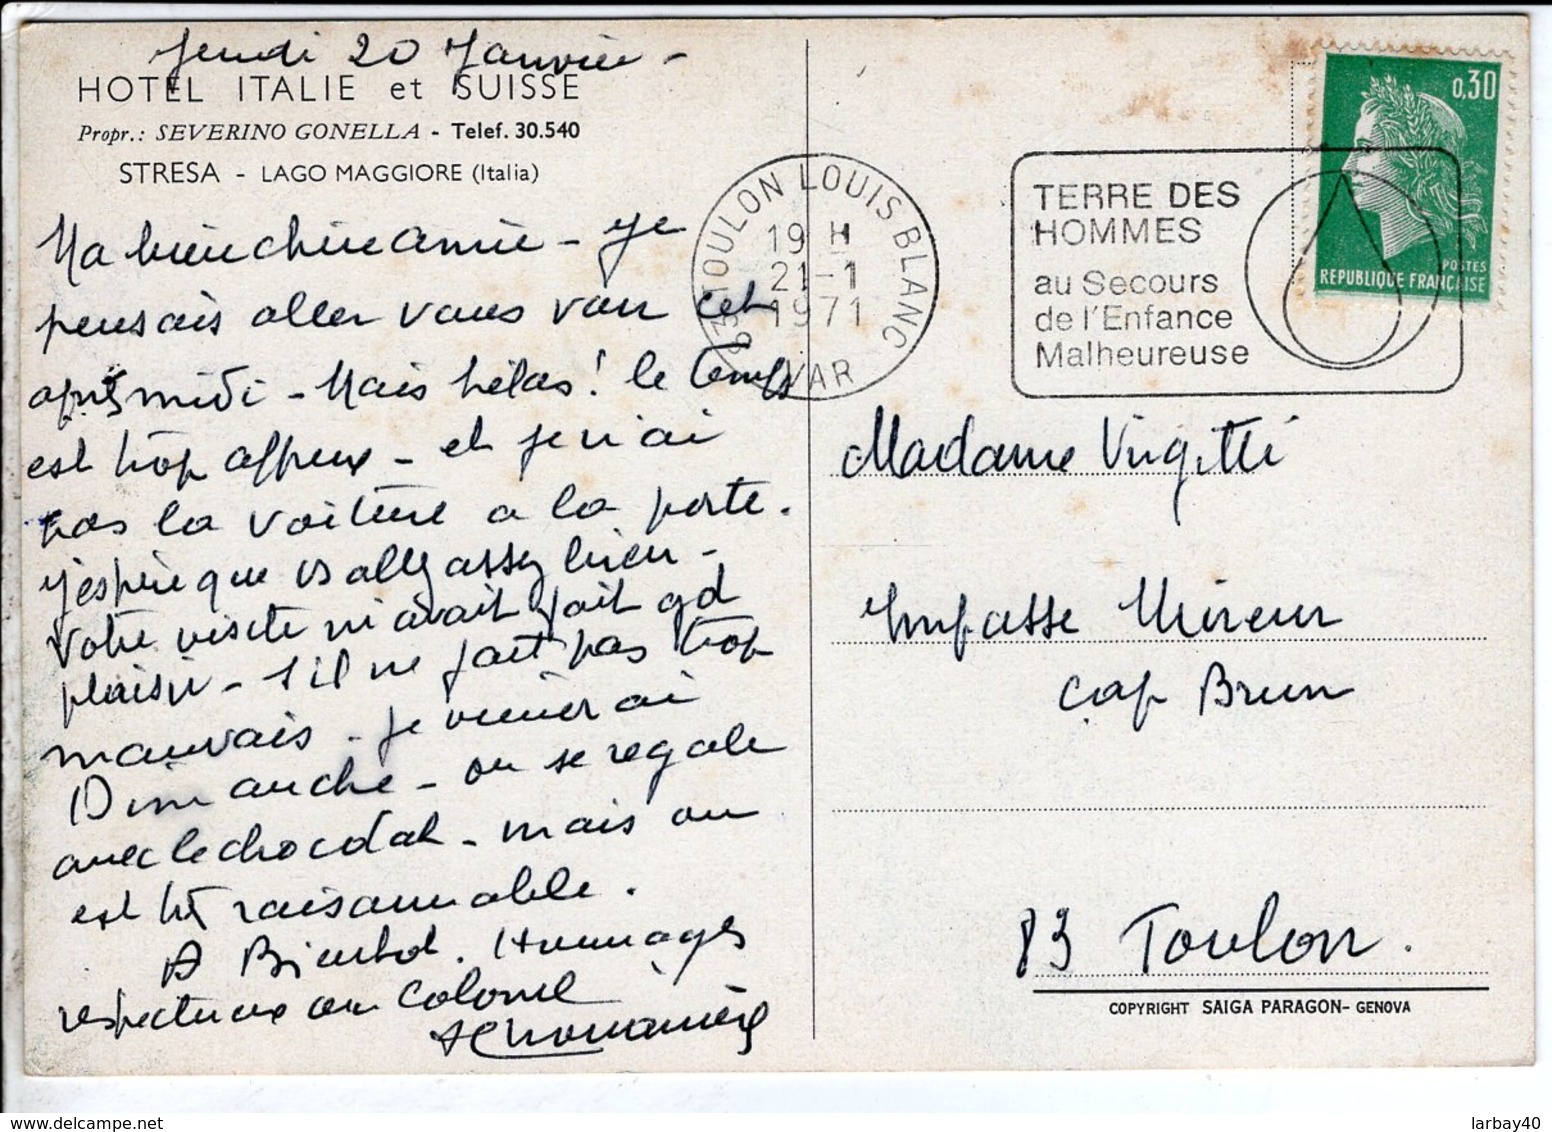 Jeudi 20 Janvier -
HOTEL ITALIE et SUISSE
Propr.: SEVERINO GONELLA - Telef. 30.540
STRESA - LAGO MAGGIORE (Italia)
Ma bien chère amie - je
pensais aller vous voir cet
après midi - Mais hélas! le temps
est trop affreux - et je n'ai
pas la voiture a la porte.
j'espère que vs allez assez bien -
Votre visite m'avait fait gd
plaisir - s'il ne fait pas trop
mauvais - je viendrai
Dimanche - on se regale
avec le chocolat - mais on
est trs raisonnable.
A Bientot. Hommages
respectueux au Colonel
63 TOULON LOUIS BLANC
19 H
21-1
1971
VAR
TERRE DES
HOMMES
au Secours
de l'Enfance
Malheureuse
0,30
POSTES
REPUBLIQUE FRANÇAISE
Madame Virgitti
Impasse Mireur
Cap Brun
83 Toulon.
COPYRIGHT SAIGA PARAGON- GENOVA
larbay40